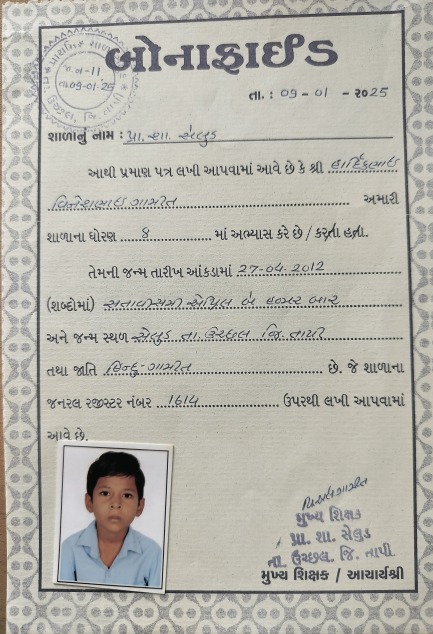 બોનાફાઈડ
જા.ન-11
તા.09-01-25
તા. : ૦9 - ૦1 - ૨૦25
શાળાનું નામ : પ્રા. શા. સેલુડ
આથી પ્રમાણ પત્ર લખી આપવામાં આવે છે કે શ્રી હાર્દિકભાઇ
વિનેશભાઇ ગામીત અમારી
શાળાના ધોરણ 8 માં અભ્યાસ કરે છે / કરતા હતા.
તેમની જન્મ તારીખ આંકડામાં 27-04-2012
(શબ્દોમાં) સત્તાવીસમી એપ્રિલ બે હજાર બાર
અને જન્મ સ્થળ સેલુડ તા. ઉચ્છલ જિ. તાપી
તથા જાતિ હિન્દુ-ગામીત છે. જે શાળાના
જનરલ રજીસ્ટર નંબર 1614 ઉપરથી લખી આપવામાં
આવે છે.
મુખ્ય શિક્ષક
પ્રા. શા. સેલુડ
તા. ઉચ્છલ. જિ. તાપી
મુખ્ય શિક્ષક / આચાર્યશ્રી